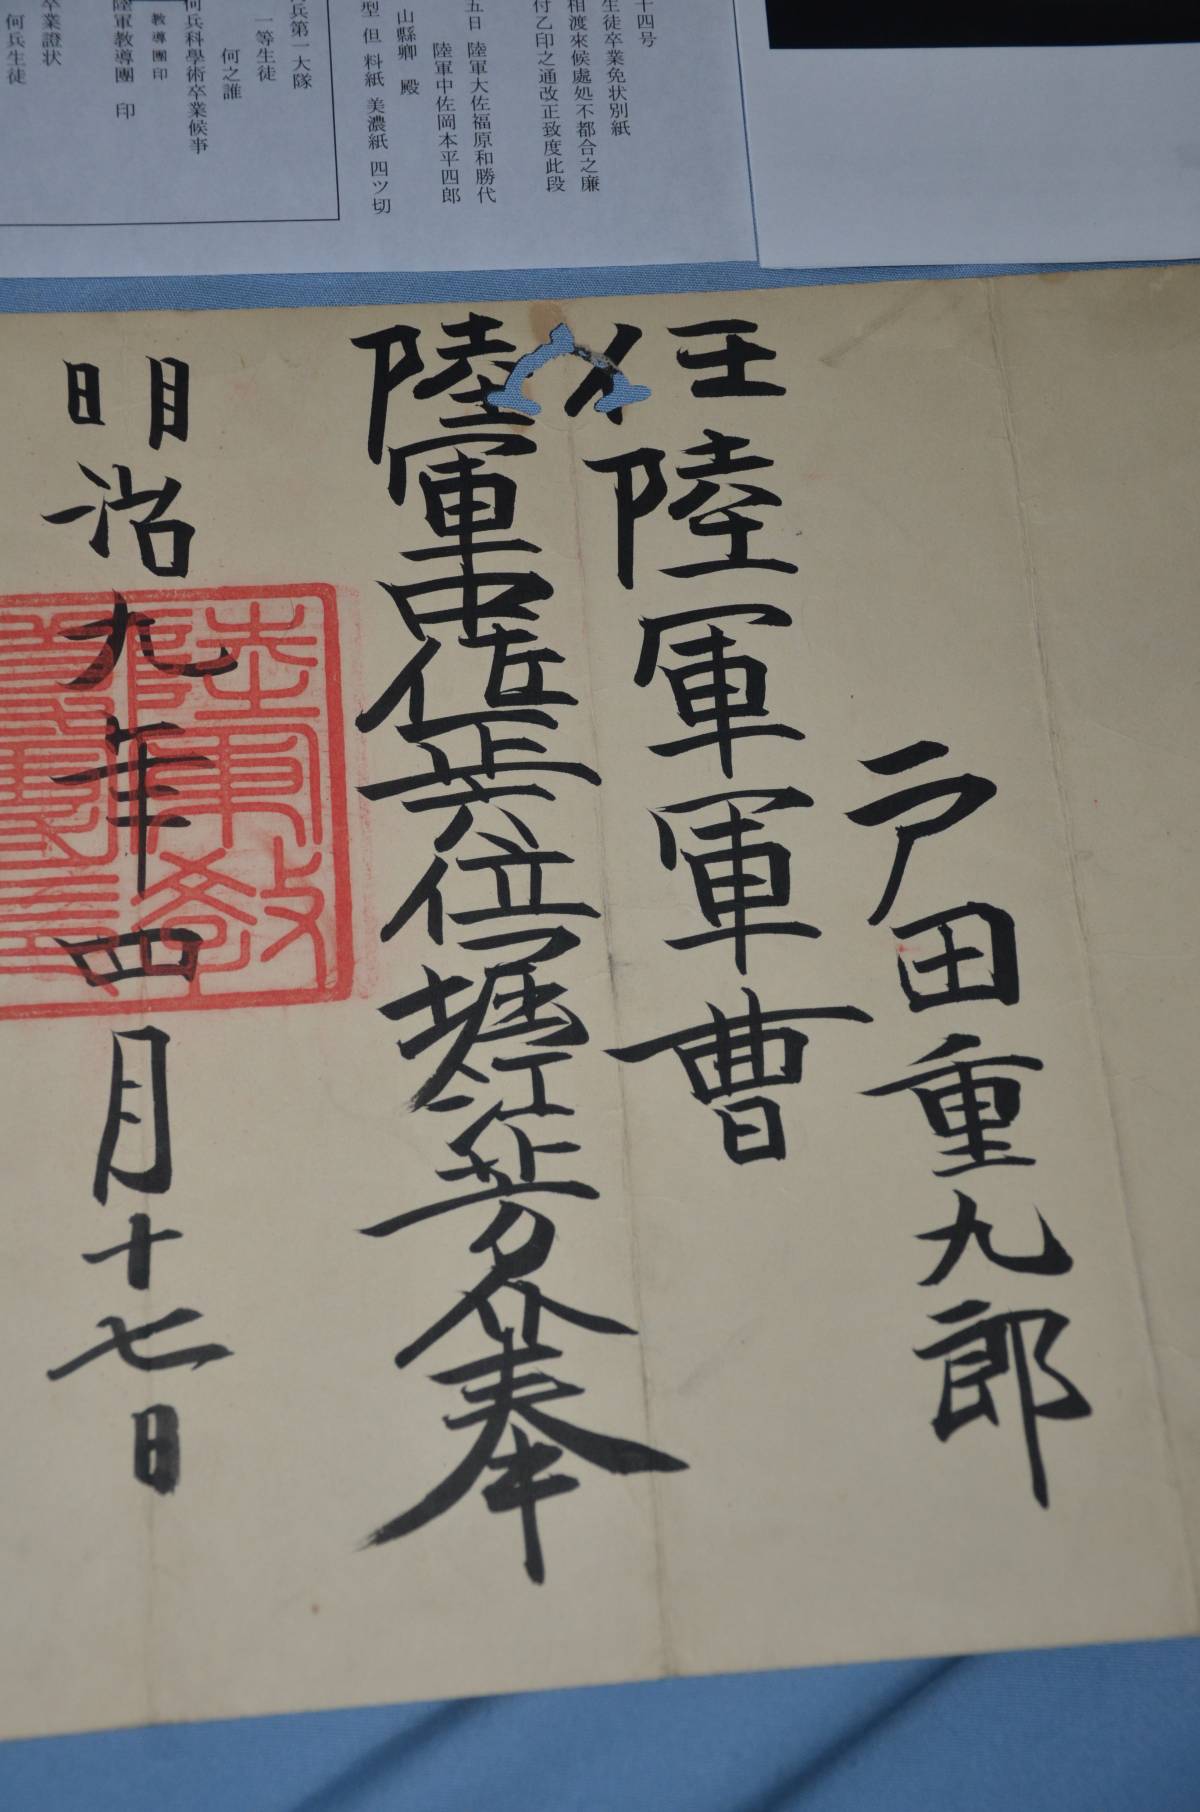 十四号
生徒卒業免状別紙
相渡来候處処不都合之廉
付乙印之通改正致度此段
五日 陸軍大佐福原和勝代
陸軍中佐岡本平四郎
山縣卿 殿
型 但 料紙 美濃紙 四ツ切
兵第一大隊
一等生徒
何之誰
何兵科學術卒業候事
教導團印
陸軍教導團 印
卒業證状
何兵生徒
戸田重九郎
任陸軍軍曹
陸軍中佐正六位堀江芳介奉
明治九年四月十七日